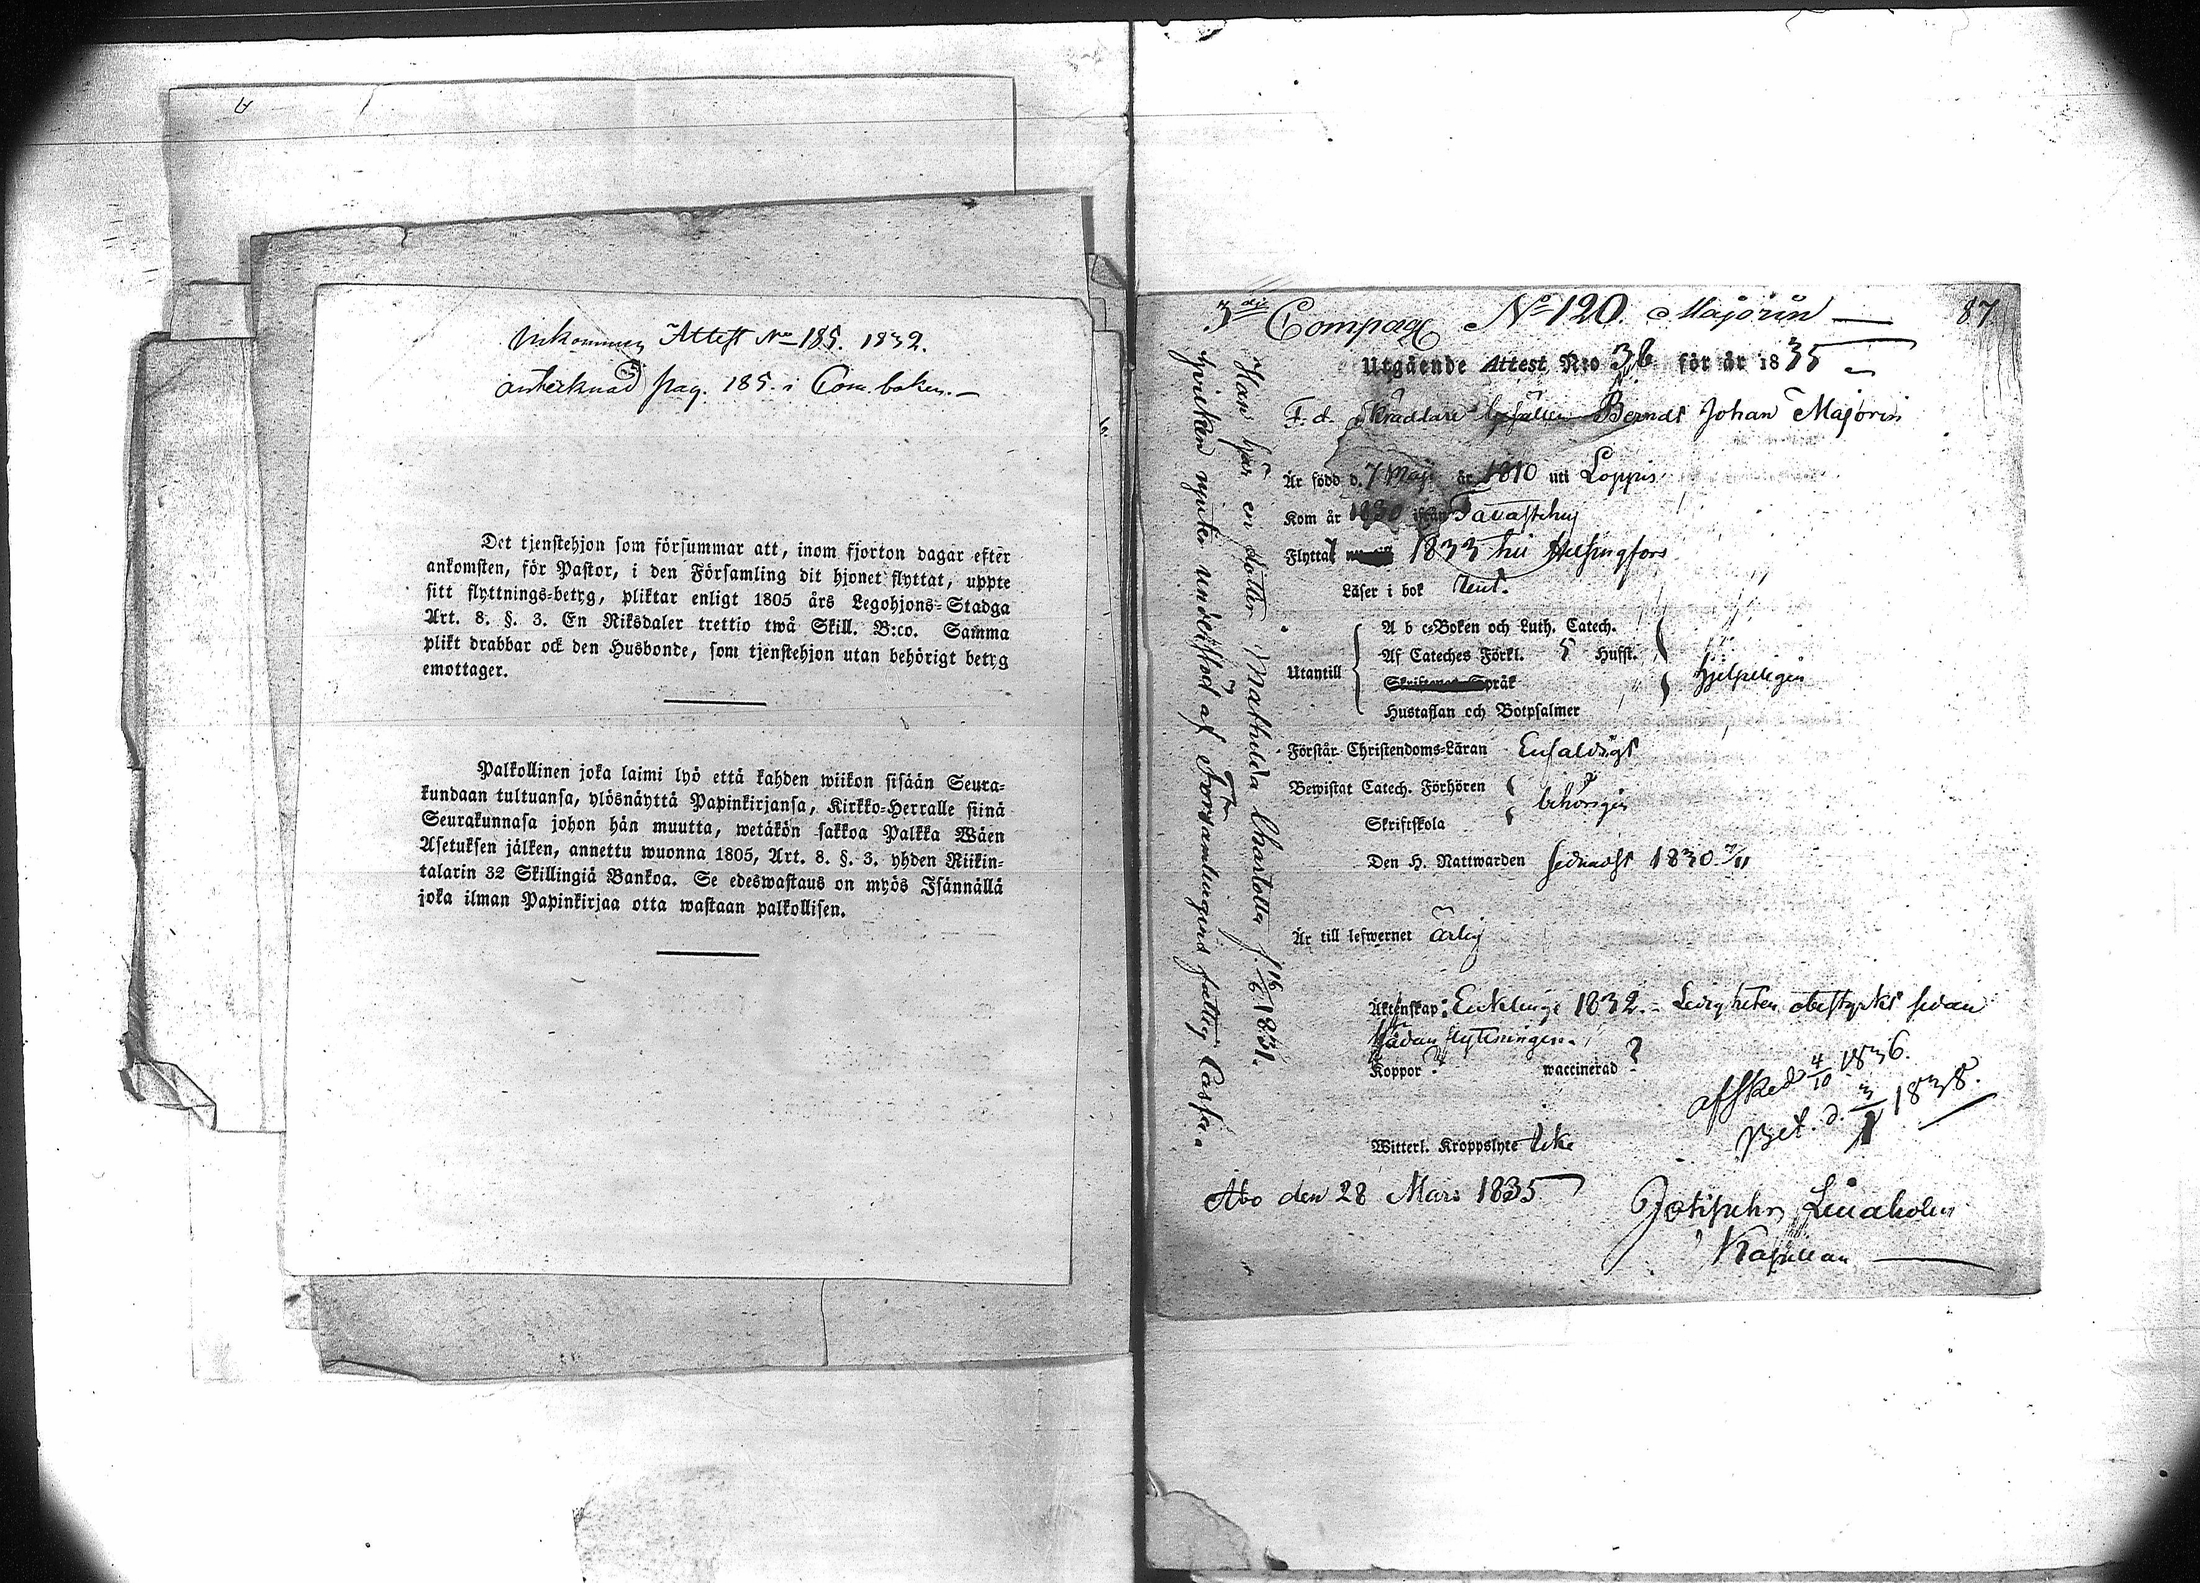 Inkommen Attest No 185. 1832.
antecknad pag. 185. i Com. boken.
Det tjenstehjon som försummar att, inom fjorton dagar efter
ankomsten, för Pastor, i den Församling dit hjonet flyttat, uppte
sitt flyttnings-betyg, pliktar enligt 1805 års Legohjons-Stadga
Art. 8. §. 3. En Riksdaler trettio twå Skill. B:co. Samma
plikt drabbar ock den Husbonde, som tjenstehjon utan behörigt betyg
emottager.
Palkollinen joka laimi lyö että kahden wiikon sisään Seura-
kundaan tultuansa, ylösnäyttä Papinkirjansa, Kirkko-Herralle siinä
Seurakunnasa johon hän muutta, wetäkön sakkoa Palkka Wäen
Asetuksen jälken, annettu wuonna 1805, Art. 8. §. 3. yhden Riikin-
talarin 32 Skillingiä Bankoa. Se edeswastaus on myös Isännällä
joka ilman Papinkirjaa otta wastaan palkollisen.
3die Compag No 120. Majorin
87
Utgående Attest N:o 36 för år 1835
F. d. Skräddare Gesällen Berndt Johan Majorin
Är född d. 7 Maji år 1810 uti Loppis
Kom år 1830 ifrån Tavastehus
Flyttat 1833 till Helsingfors
Läser i bok rent.
Utantill
A b c-Boken och Luth. Catech.
Af Cateches Förkl. 5 Hufst.
Språk
Hustaflan och Botpsalmer
hjelpeligen
Förstår Christendoms-Läran Enfaldigt
Bewistat Catech. Förhören
Skriftskola
behörigen
Den H. Nattwarden sednast 1830 7/11
Är till lefwernet ärlig
Äktenskap: Enkling 1832. Ledigheten obestyrkt sedan
sådan flyttningen.
Koppor? waccinerad?
Witterl. Kroppslyte Icke
afsked 4/10 1836.
Bet. d. 3/1 1838.
Åbo den 28 Mars 1835
Lindholm
Kapellan
Han har en dotter Mathilda Charlotta f. 16/6 1831.
hvilken njuter understöd af Församlingens fattig Cassa.